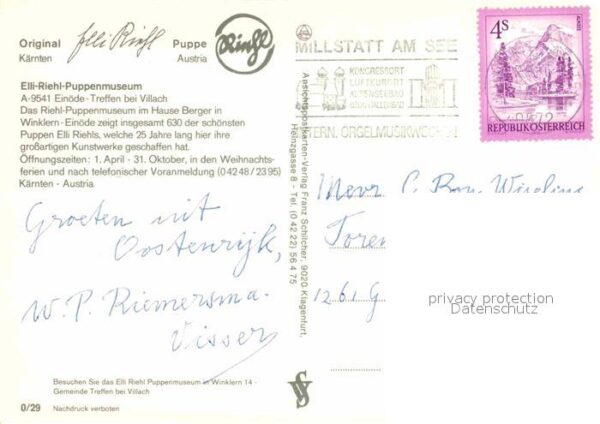 Original Elli Riehl Puppe
Kärnten Austria
Riehl
Elli-Riehl-Puppenmuseum
A-9541 Einöde-Treffen bei Villach
Das Riehl-Puppenmuseum im Hause Berger in
Winklern-Einöde zeigt insgesamt 630 der schönsten
Puppen Elli Riehls, welche 25 Jahre lang hier ihre
großartigen Kunstwerke geschaffen hat.
Öffnungszeiten: 1. April - 31. Oktober, in den Weihnachts-
ferien und nach telefonischer Voranmeldung (0 42 48 / 23 95)
Kärnten - Austria
Groeten uit
Oostenrijk,
W. P. Riemersma-
Visser
Besuchen Sie das Elli Riehl Puppenmuseum in Winklern 14 -
Gemeinde Treffen bei Villach
0/29 Nachdruck verboten
Ansichtspostkarten-Verlag Franz Schilcher, 9020 Klagenfurt,
Heinzgasse 8 - Tel. (0 42 22) 56 4 75
MILLSTATT AM SEE
KONGRESSORT
LUFTKURORT
ALPENSEEBAD
INTERN. ORGELMUSIKWOCHEN
4S
REPUBLIK ÖSTERREICH
Mevr
Toren
1261 G
privacy protection
Datenschutz